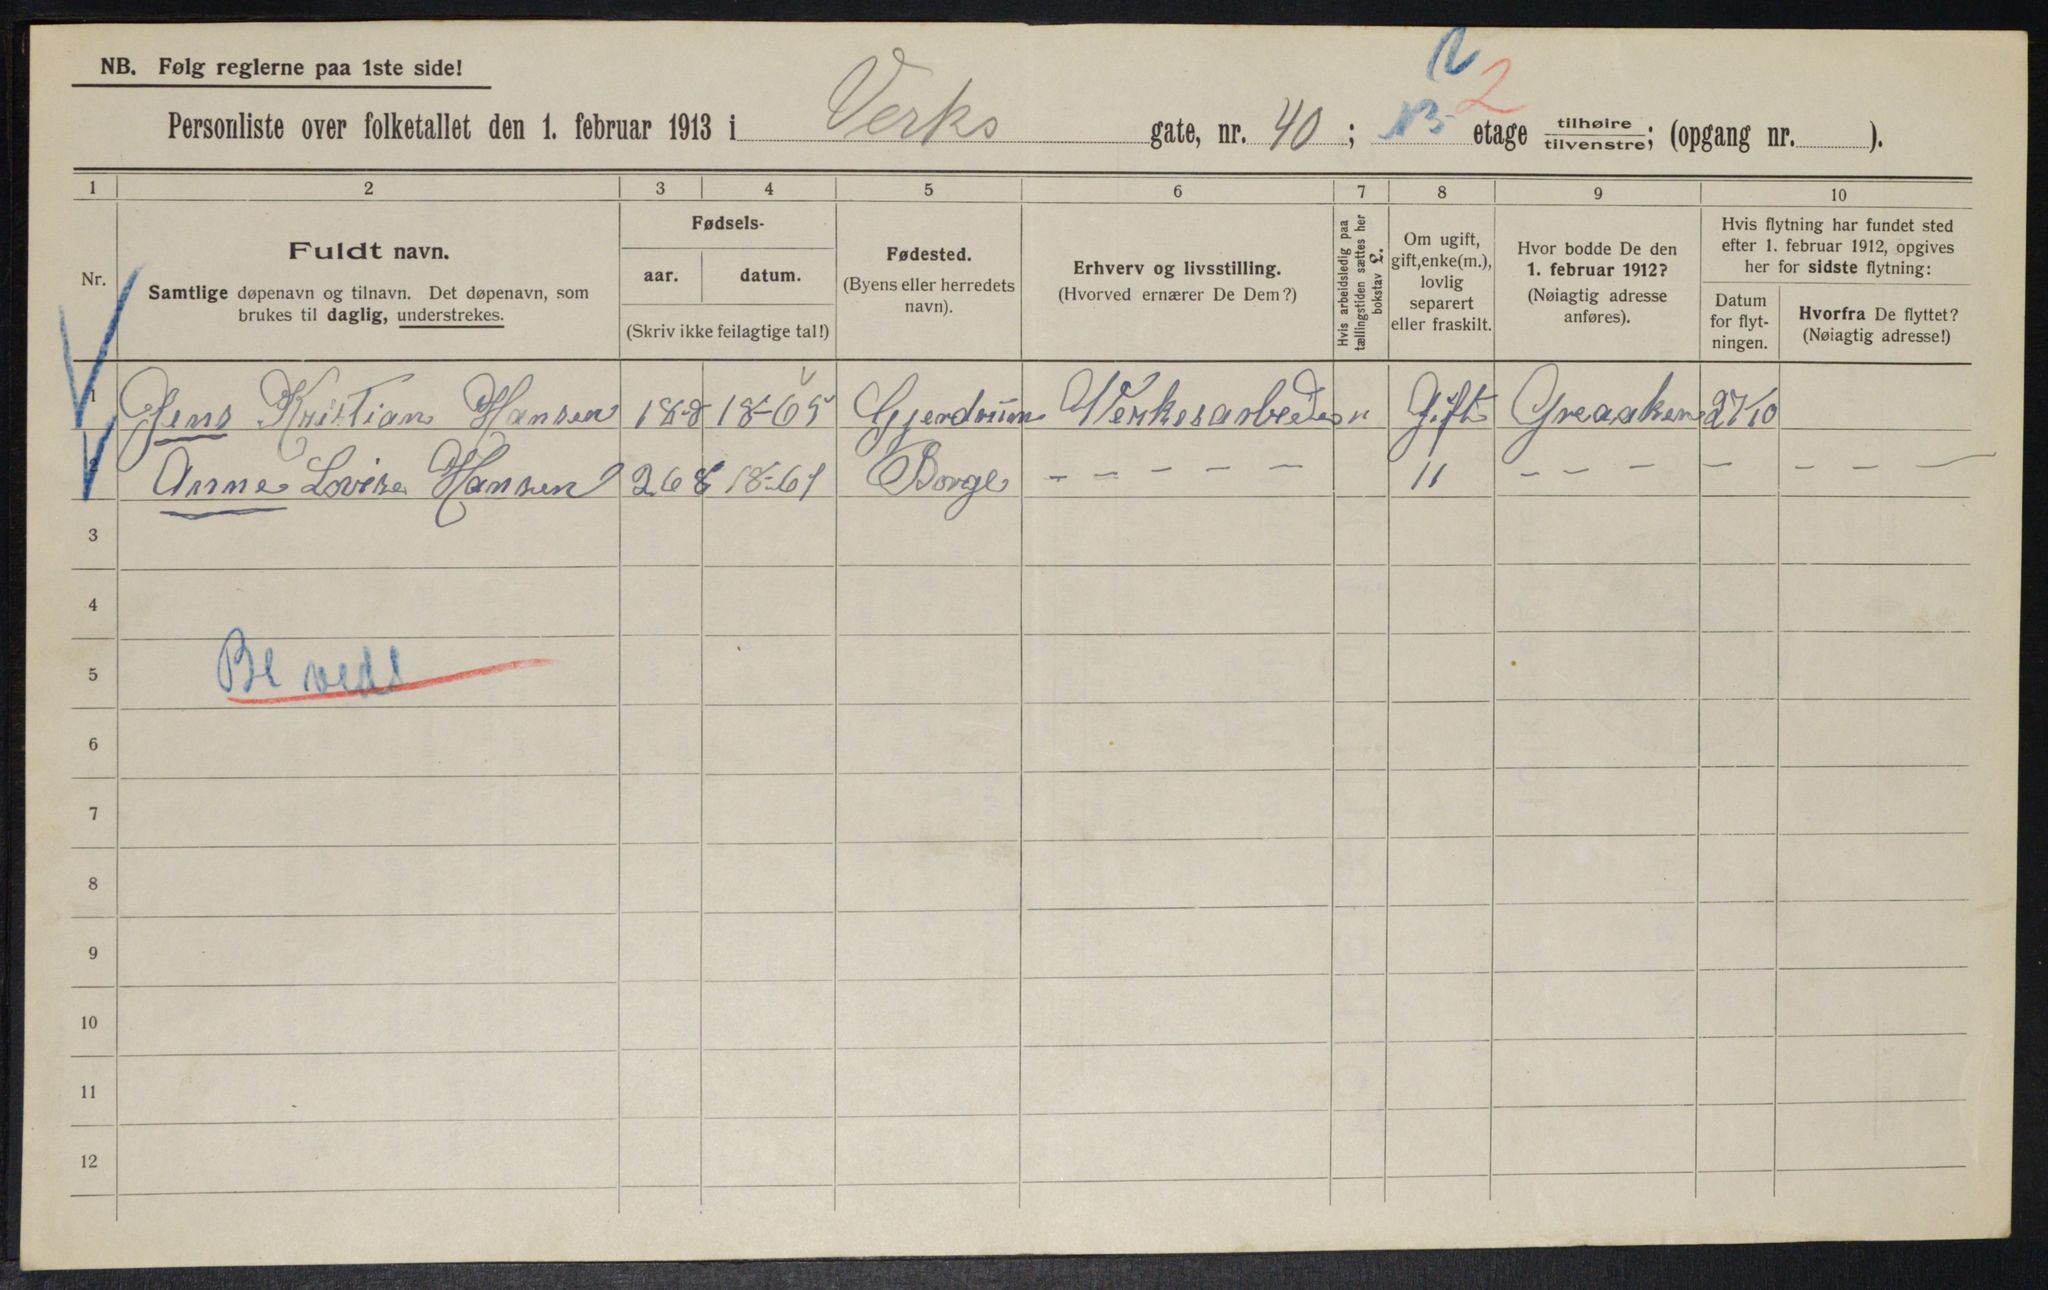 NB. Følg reglerne paa 1ste side!
Personliste over folketallet den 1. februar 1913 i Verks gate, nr. 40; 2 etage tilhøire tilvenstre; (opgang nr. ).
1 2 3 4 5 6 7 8 9 10
Nr.
Fuldt navn.
Samtlige døpenavn og tilnavn. Det døpenavn, som
brukes til daglig, understrekes.
Fødsels-
aar. datum.
(Skriv ikke feilagtige tal!)
Fødested.
(Byens eller herredets
navn).
Erhverv og livsstilling.
(Hvorved ernærer De Dem?)
Hvis arbeidsledig paa
tællingstiden sættes her
bokstav L.
Om ugift,
gift, enke(m.),
lovlig
separert
eller fraskilt.
Hvor bodde De den
1. februar 1912?
(Nøiagtig adresse
anføres).
Hvis flytning har fundet sted
efter 1. februar 1912, opgives
her for sidste flytning:
Datum
for flyt-
ningen.
Hvorfra De flyttet?
(Nøiagtig adresse!)
1 Jens Kristian Hansen 18-65 Gjerdrum Verkesarbeder Gift Greaaker 27/10
2 Anne Lovise Hansen 268 18-61 Borge - - - - - 11 - - - - - - - -
3
4
5 Bl vedl
6
7
8
9
10
11
12